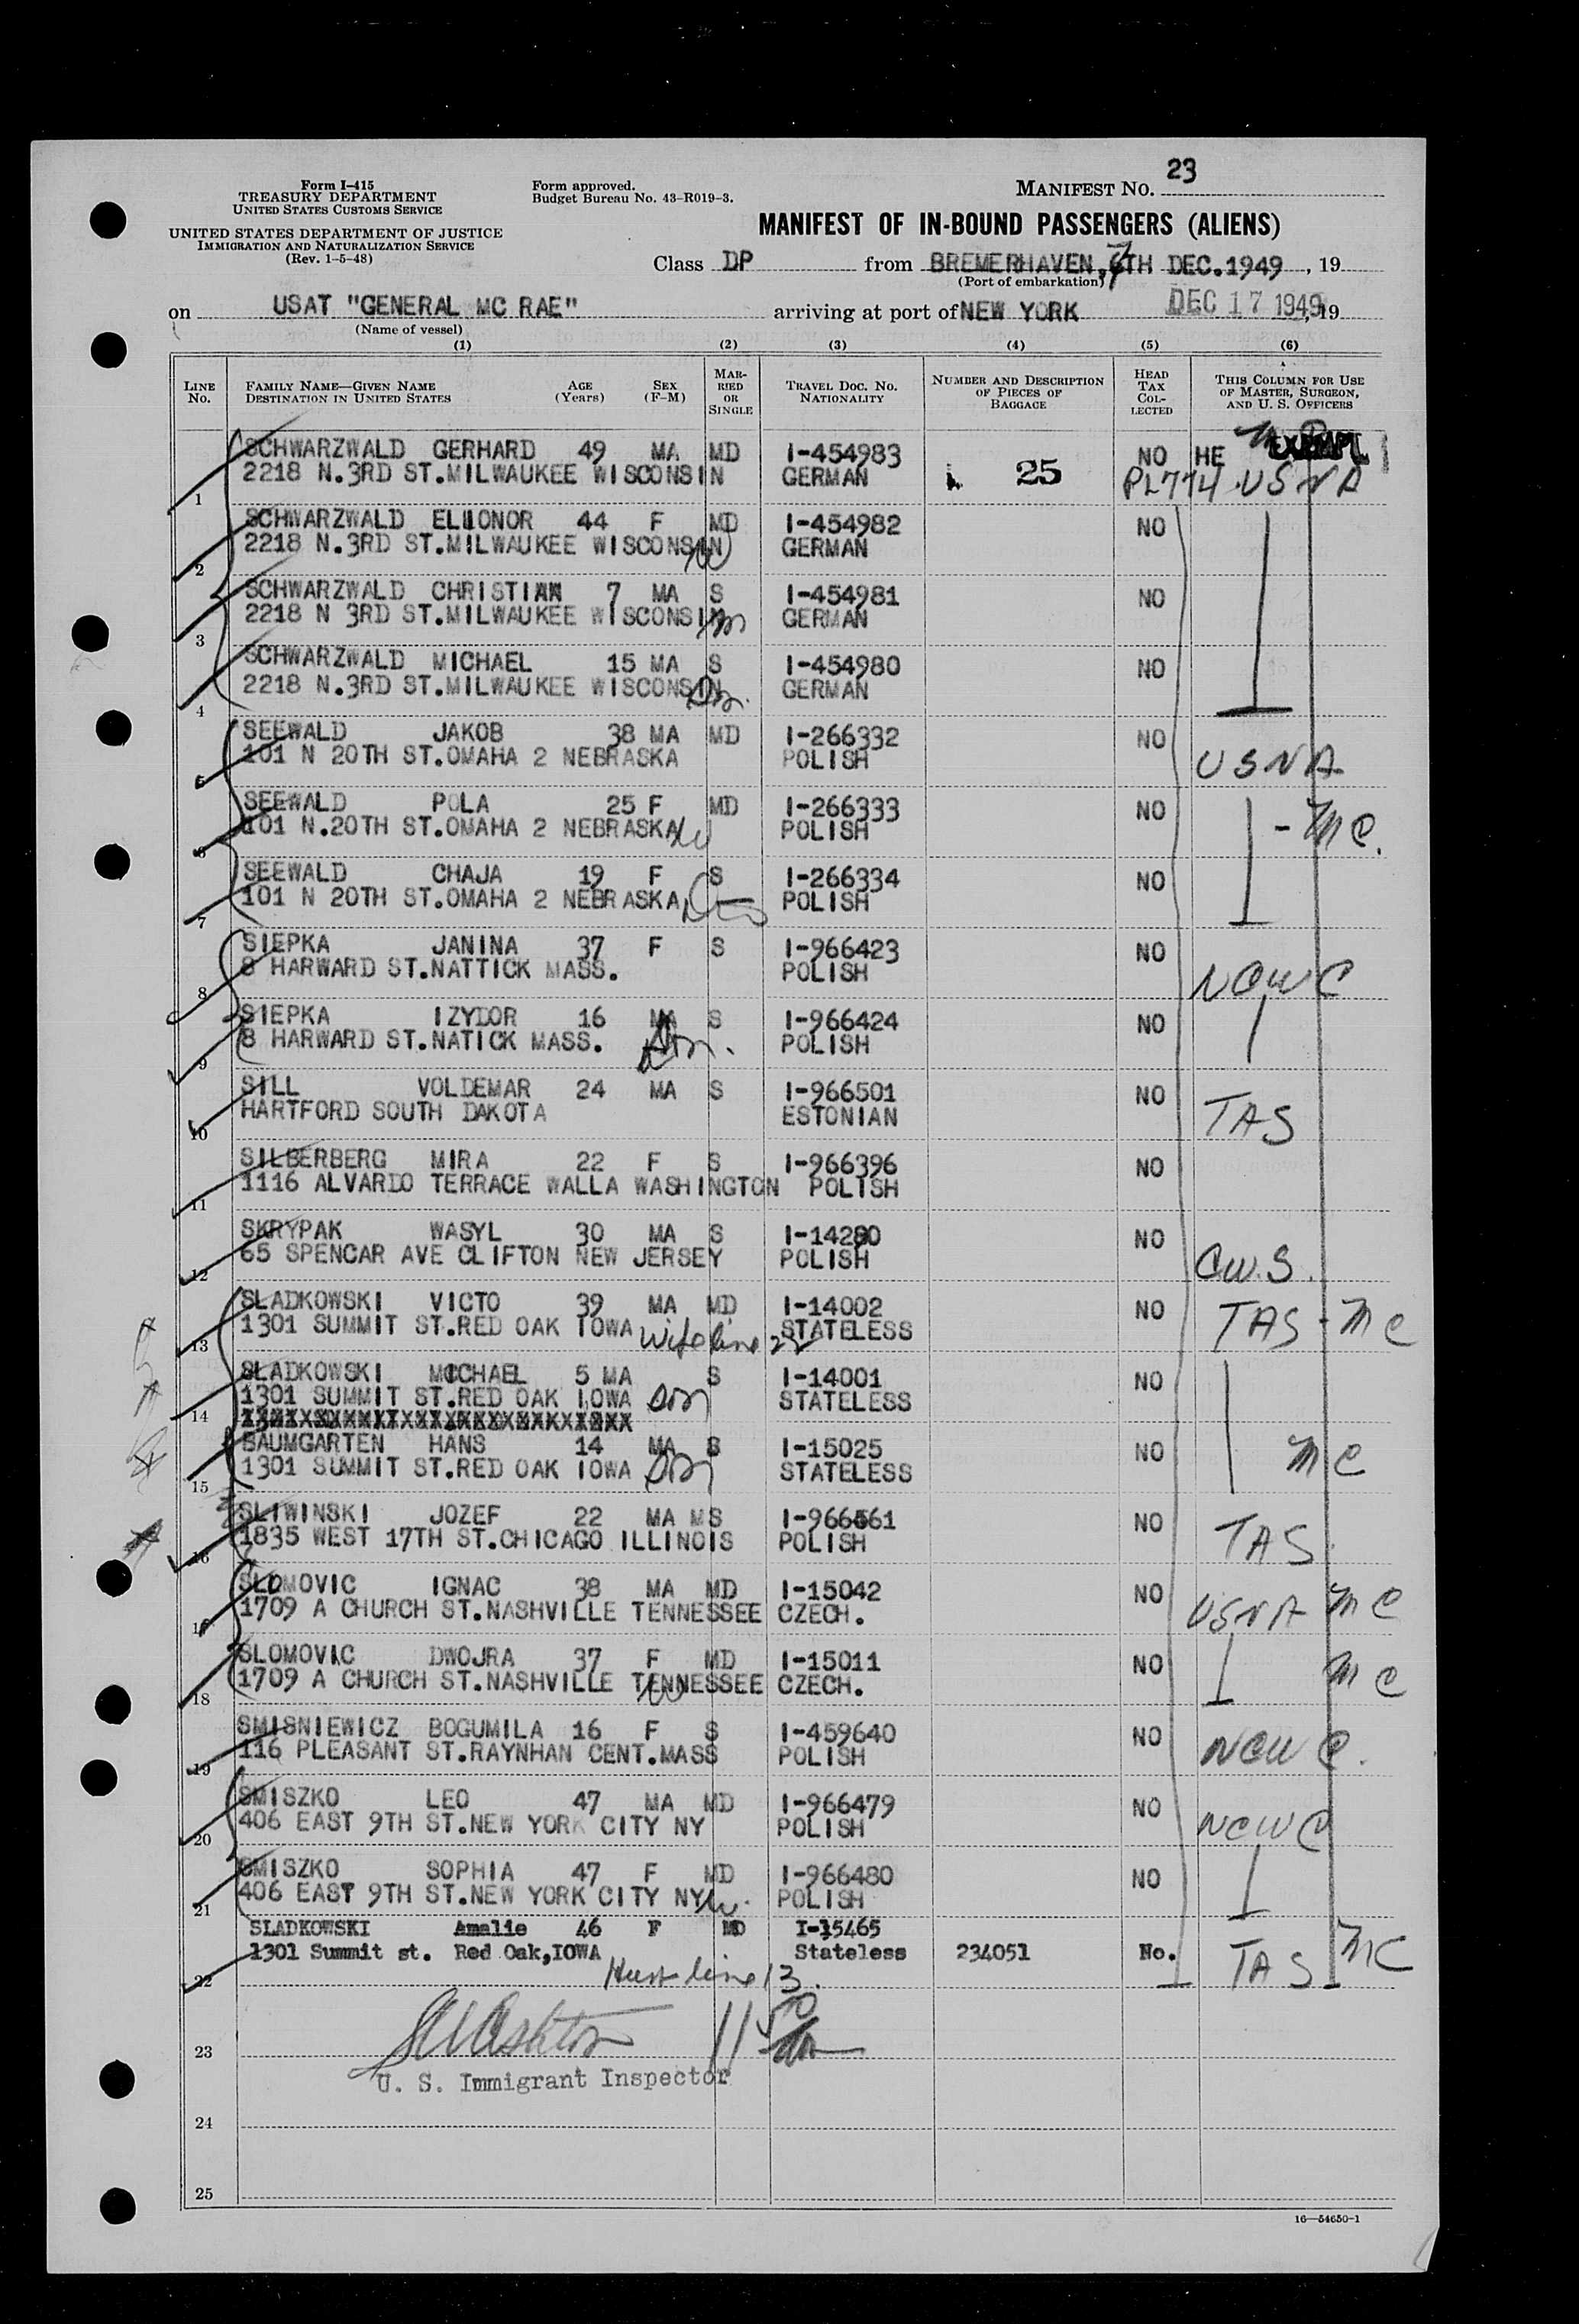 Form I-415
TREASURY DEPARTMENT
UNITED STATES CUSTOMS SERVICE
UNITED STATES DEPARTMENT OF JUSTICE
IMMIGRATION AND NATURALIZATION SERVICE
(Rev. 1-5-48)
Form approved.
Budget Bureau No. 43-R019-3.
MANIFEST No. 23
MANIFEST OF IN-BOUND PASSENGERS (ALIENS)
Class DP from BREMERHAVEN, 7TH DEC.1949, 19
(Port of embarkation)
on USAT "GENERAL MC RAE" arriving at port of NEW YORK DEC 17 1949, 19
(Name of vessel)
(1) (2) (3) (4) (5) (6)
LINE No. FAMILY NAME—GIVEN NAME DESTINATION IN UNITED STATES AGE (Years) SEX (F-M) MARRIED OR SINGLE TRAVEL DOC. No. NATIONALITY NUMBER AND DESCRIPTION OF PIECES OF BAGGAGE HEAD TAX COLLECTED THIS COLUMN FOR USE OF MASTER, SURGEON, AND U. S. OFFICERS
SCHWARZWALD GERHARD 49 MA MD I-454983 25 NO HE EXEMPT
1 2218 N.3RD ST.MILWAUKEE WISCONSIN GERMAN PL774 USNA
SCHWARZWALD ELLONOR 44 F MD I-454982 NO
2 2218 N.3RD ST.MILWAUKEE WISCONSIN W GERMAN
SCHWARZWALD CHRISTIAN 7 MA S I-454981 NO
3 2218 N 3RD ST.MILWAUKEE WISCONSIN GERMAN
SCHWARZWALD MICHAEL 15 MA S I-454980 NO
4 2218 N.3RD ST.MILWAUKEE WISCONSIN GERMAN
SEEWALD JAKOB 38 MA MD I-266332 NO
5 101 N 20TH ST.OMAHA 2 NEBRASKA POLISH USNA
SEEWALD POLA 25 F MD I-266333 NO
6 101 N.20TH ST.OMAHA 2 NEBRASKA W POLISH - MC.
SEEWALD CHAJA 19 F S I-266334 NO
7 101 N 20TH ST.OMAHA 2 NEBRASKA POLISH
SIEPKA JANINA 37 F S I-966423 NO
8 8 HARWARD ST.NATTICK MASS. POLISH NCWC
SIEPKA IZYDOR 16 MA S I-966424 NO
9 8 HARWARD ST.NATICK MASS. POLISH
SILL VOLDEMAR 24 MA S I-966501 NO
10 HARTFORD SOUTH DAKOTA ESTONIAN TAS
SILBERBERG MIRA 22 F S I-966396 NO
11 1116 ALVARDO TERRACE WALLA WASHINGTON POLISH
SKRYPAK WASYL 30 MA S I-14280 NO
12 65 SPENCAR AVE CLIFTON NEW JERSEY POLISH CW.S.
SLADKOWSKI VICTO 39 MA MD I-14002 NO TAS - MC
13 1301 SUMMIT ST.RED OAK IOWA Wife line 22 STATELESS
SLADKOWSKI MICHAEL 5 MA S I-14001 NO
14 1301 SUMMIT ST.RED OAK IOWA Son STATELESS
BAUMGARTEN HANS 14 MA S I-15025 NO
15 1301 SUMMIT ST.RED OAK IOWA Son STATELESS MC
SLIWINSKI JOZEF 22 MA MS I-966561 NO
16 1835 WEST 17TH ST.CHICAGO ILLINOIS POLISH TAS
SLOMOVIC IGNAC 38 MA MD I-15042 NO
17 1709 A CHURCH ST.NASHVILLE TENNESSEE CZECH. USNA MC
SLOMOVIC DWOJRA 37 F MD I-15011 NO
18 1709 A CHURCH ST.NASHVILLE TENNESSEE W CZECH. MC
SMISNIEWICZ BOGUMILA 16 F S I-459640 NO
19 116 PLEASANT ST.RAYNHAN CENT.MASS POLISH NCWC.
SMISZKO LEO 47 MA MD I-966479 NO
20 406 EAST 9TH ST.NEW YORK CITY NY POLISH NCWC
SMISZKO SOPHIA 47 F MD I-966480 NO
21 406 EAST 9TH ST.NEW YORK CITY NY W. POLISH
SLADKOWSKI Amalie 46 F MD I-15465
22 1301 Summit st. Red Oak,IOWA Stateless 234051 No. TAS MC
Husb line 13.
23
U. S. Immigrant Inspector
24
25
16—54650-1